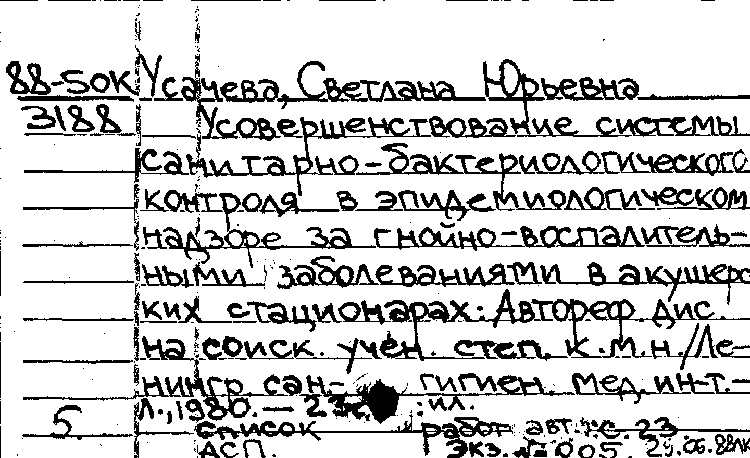 88-50К Усачева, Светлана Юрьевна
3188 Усовершенствование системы
санитарно-бактериологического
контроля в эпидемиологическом
надзоре за гнойно-воспалитель-
ными заболеваниями в акушерс
ких стационарах: Автореф. дис.
на соиск. учен. степ. к.м.н./Ле-
нингр. сан- гигиен. мед. ин-т.-
5. Л., 1980. — 23 : ил.
список работ авт.: с. 23
АСП. Экз. № 005.